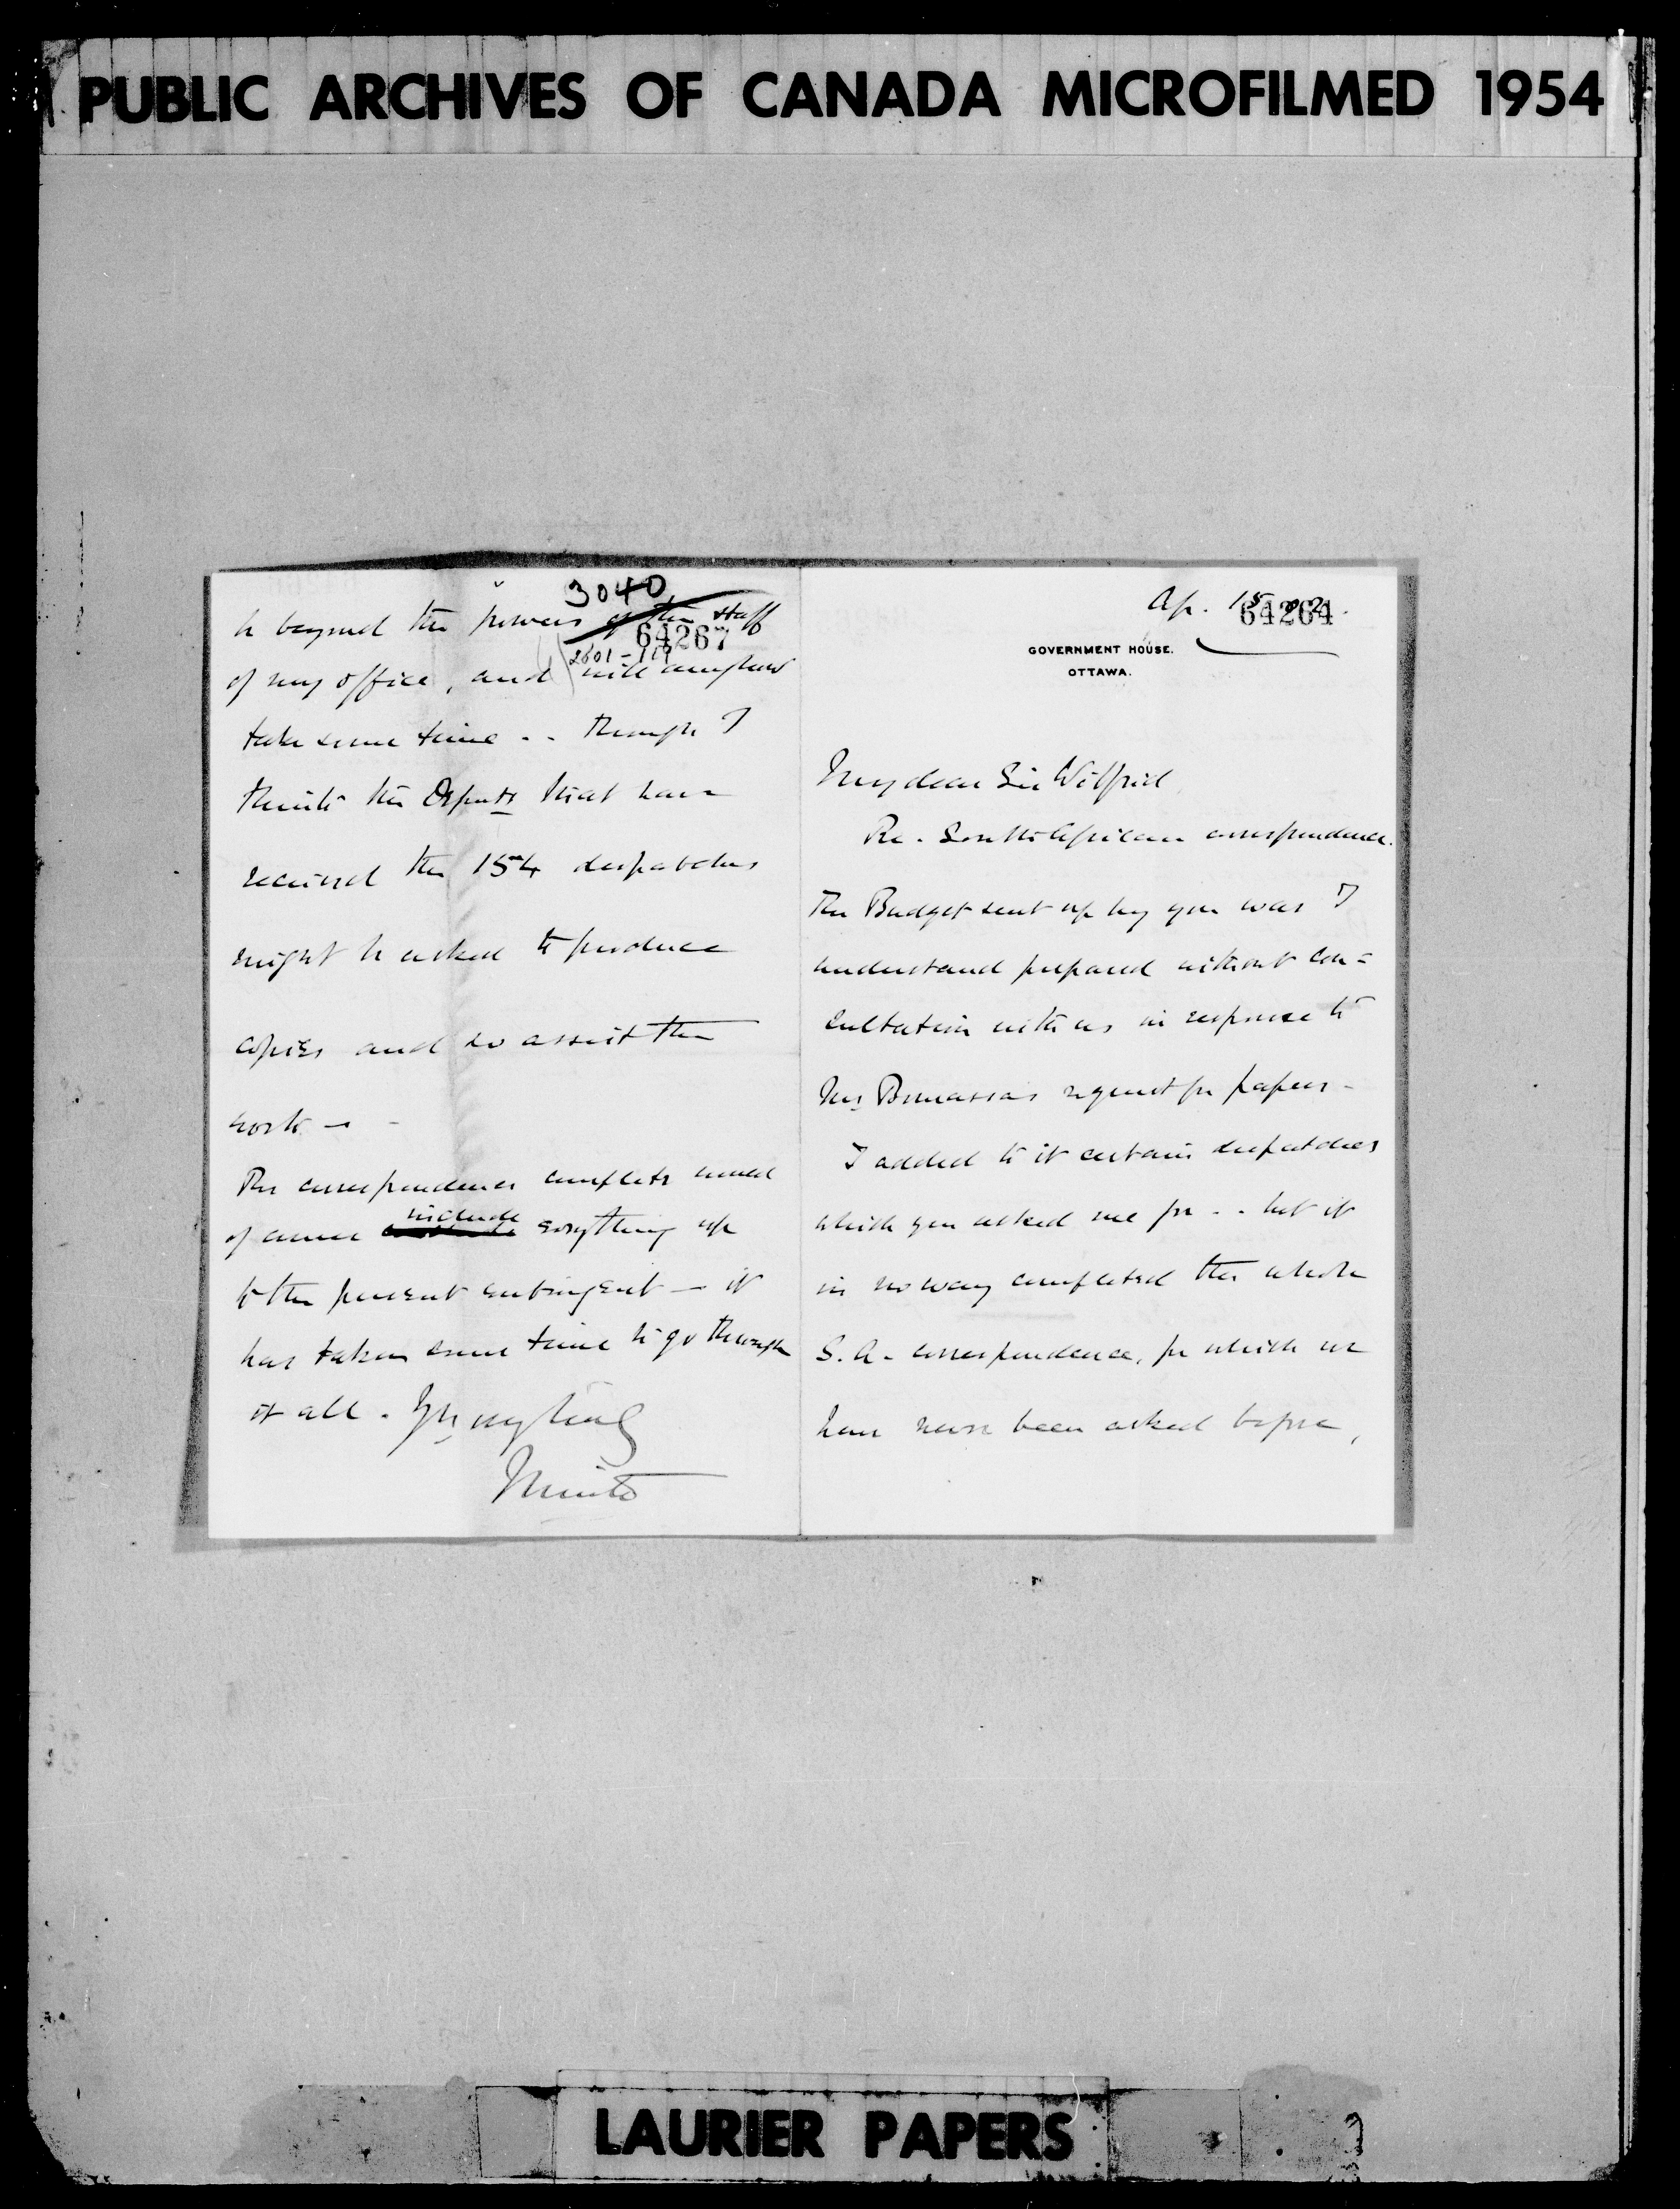 PUBLIC ARCHIVES OF CANADA MICROFILMED 1954
3040
be beyond the powers of the staff
64267
2601-119
of my office, and will anyhow
take some time -- though I
think the Depts that have
received the 154 despatches
might be asked to produce
copies and so assist the
work -
The correspondence complete would
of course include everything up
to the present contingent - it
has taken some time to go through
it all. Yrs very truly
Minto
Ap. 15 02.
64264
GOVERNMENT HOUSE.
OTTAWA.
My dear Sir Wilfrid
Re. South African correspondence.
The Budget sent up by you was I
understand prepared without con=
sultation with us in response to
Mr Bourassa's request for papers -
I added to it certain despatches
which you asked me for -- but it
in no way completed the whole
S.A. correspondence, for which we
have never been asked before,
LAURIER PAPERS